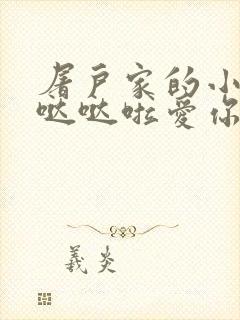 屠户家的小
哒哒啦爱你
羲炎